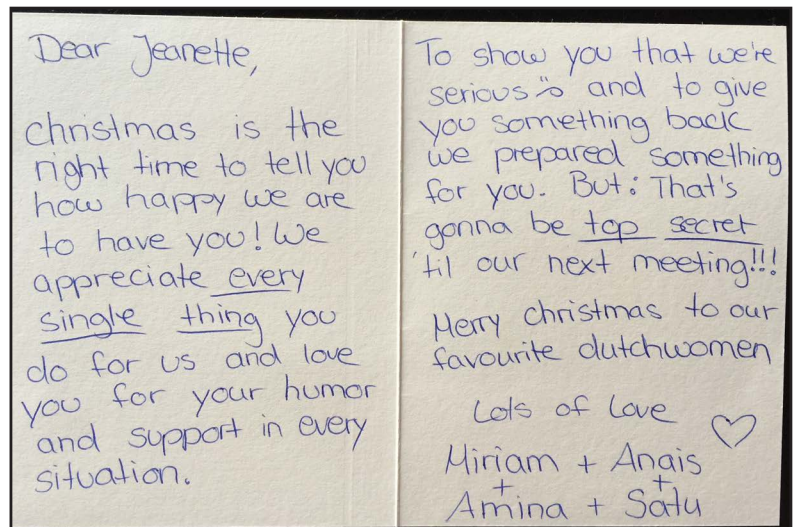 Dear Jeanette,
christmas is the
right time to tell you
how happy we are
to have you! We
appreciate every
single thing you
do for us and love
you for your humor
and support in every
situation.
To show you that we're
serious and to give
you something back
we prepared something
for you. But: That's
gonna be top secret
'til our next meeting!!!
Merry christmas to our
favourite dutchwomen
Lots of Love
Miriam + Anais
+ +
Amina + Satu